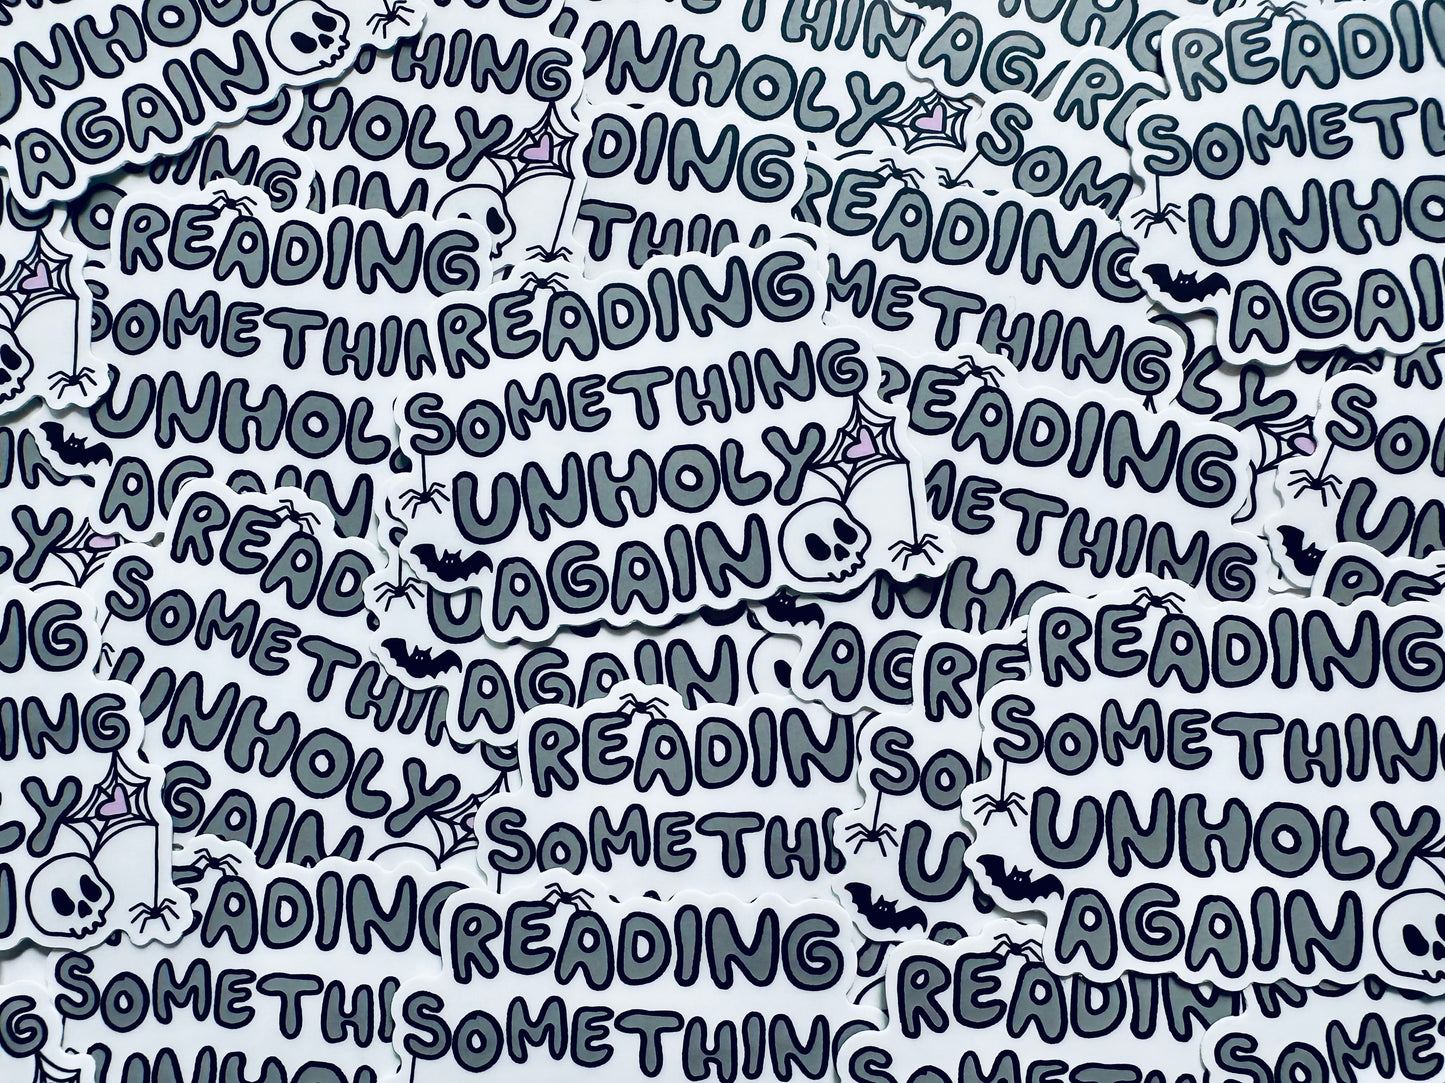 READING
SOMETHING
UNHOLY
AGAIN